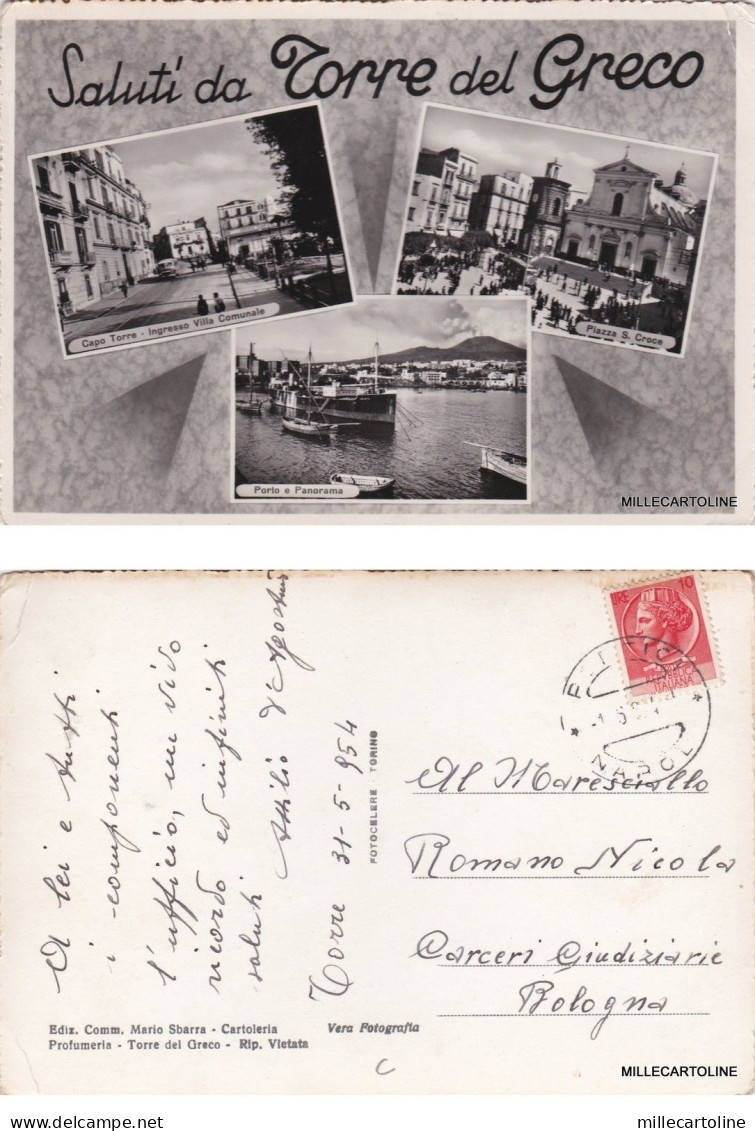 Saluti da Torre del Greco
Capo Torre - Ingresso Villa Comunale
Piazza S. Croce
Porto e Panorama
MILLECARTOLINE
A lei e tutti
i componenti
l'ufficio, un vivo
ricordo ed infiniti
saluti Attilio D'Agostino
Torre 31-5-954
Ediz. Comm. Mario Sbarra - Cartoleria
Profumeria - Torre del Greco - Rip. Vietata
Vera Fotografia
FOTOCELERE TORINO
LIRE 10
REPUBBLICA
ITALIANA
Al Maresciallo
Romano Nicola
Carceri Giudiziarie
Bologna
C
MILLECARTOLINE
millecartoline